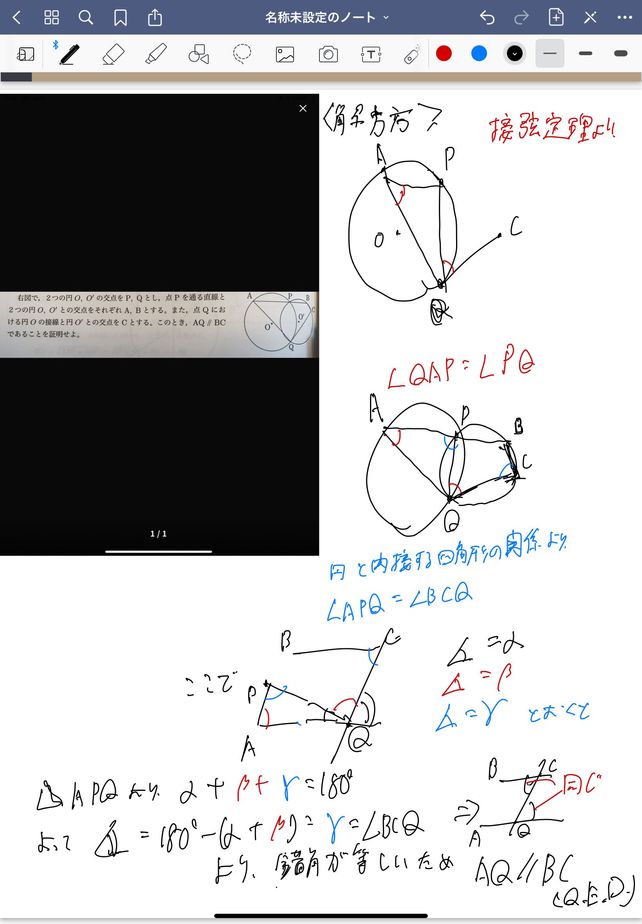 名称未設定のノート
右図で，2つの円O, O′の交点をP, Qとし，点Pを通る直線と
2つの円O, O′との交点をそれぞれA, Bとする。また，点Qにお
ける円Oの接線と円O′との交点をCとする。このとき，AQ∥BC
であることを証明せよ。
A P B C O O′ Q
1 / 1
<解き方>
接弦定理より
A P O C Q
∠QAP=∠PQ
A P B C Q
円と内接する四角形の関係より
∠APQ=∠BCQ
ここで
B C P A Q
∠=α
∠=β
∠=γ とおくと
△APQより α+β+γ=180°
よって ∠=180°-(α+β)=γ=∠BCQ
⇒ B C A Q 同じ
より、錯角が等しいため AQ∥BC
(Q.E.D.)